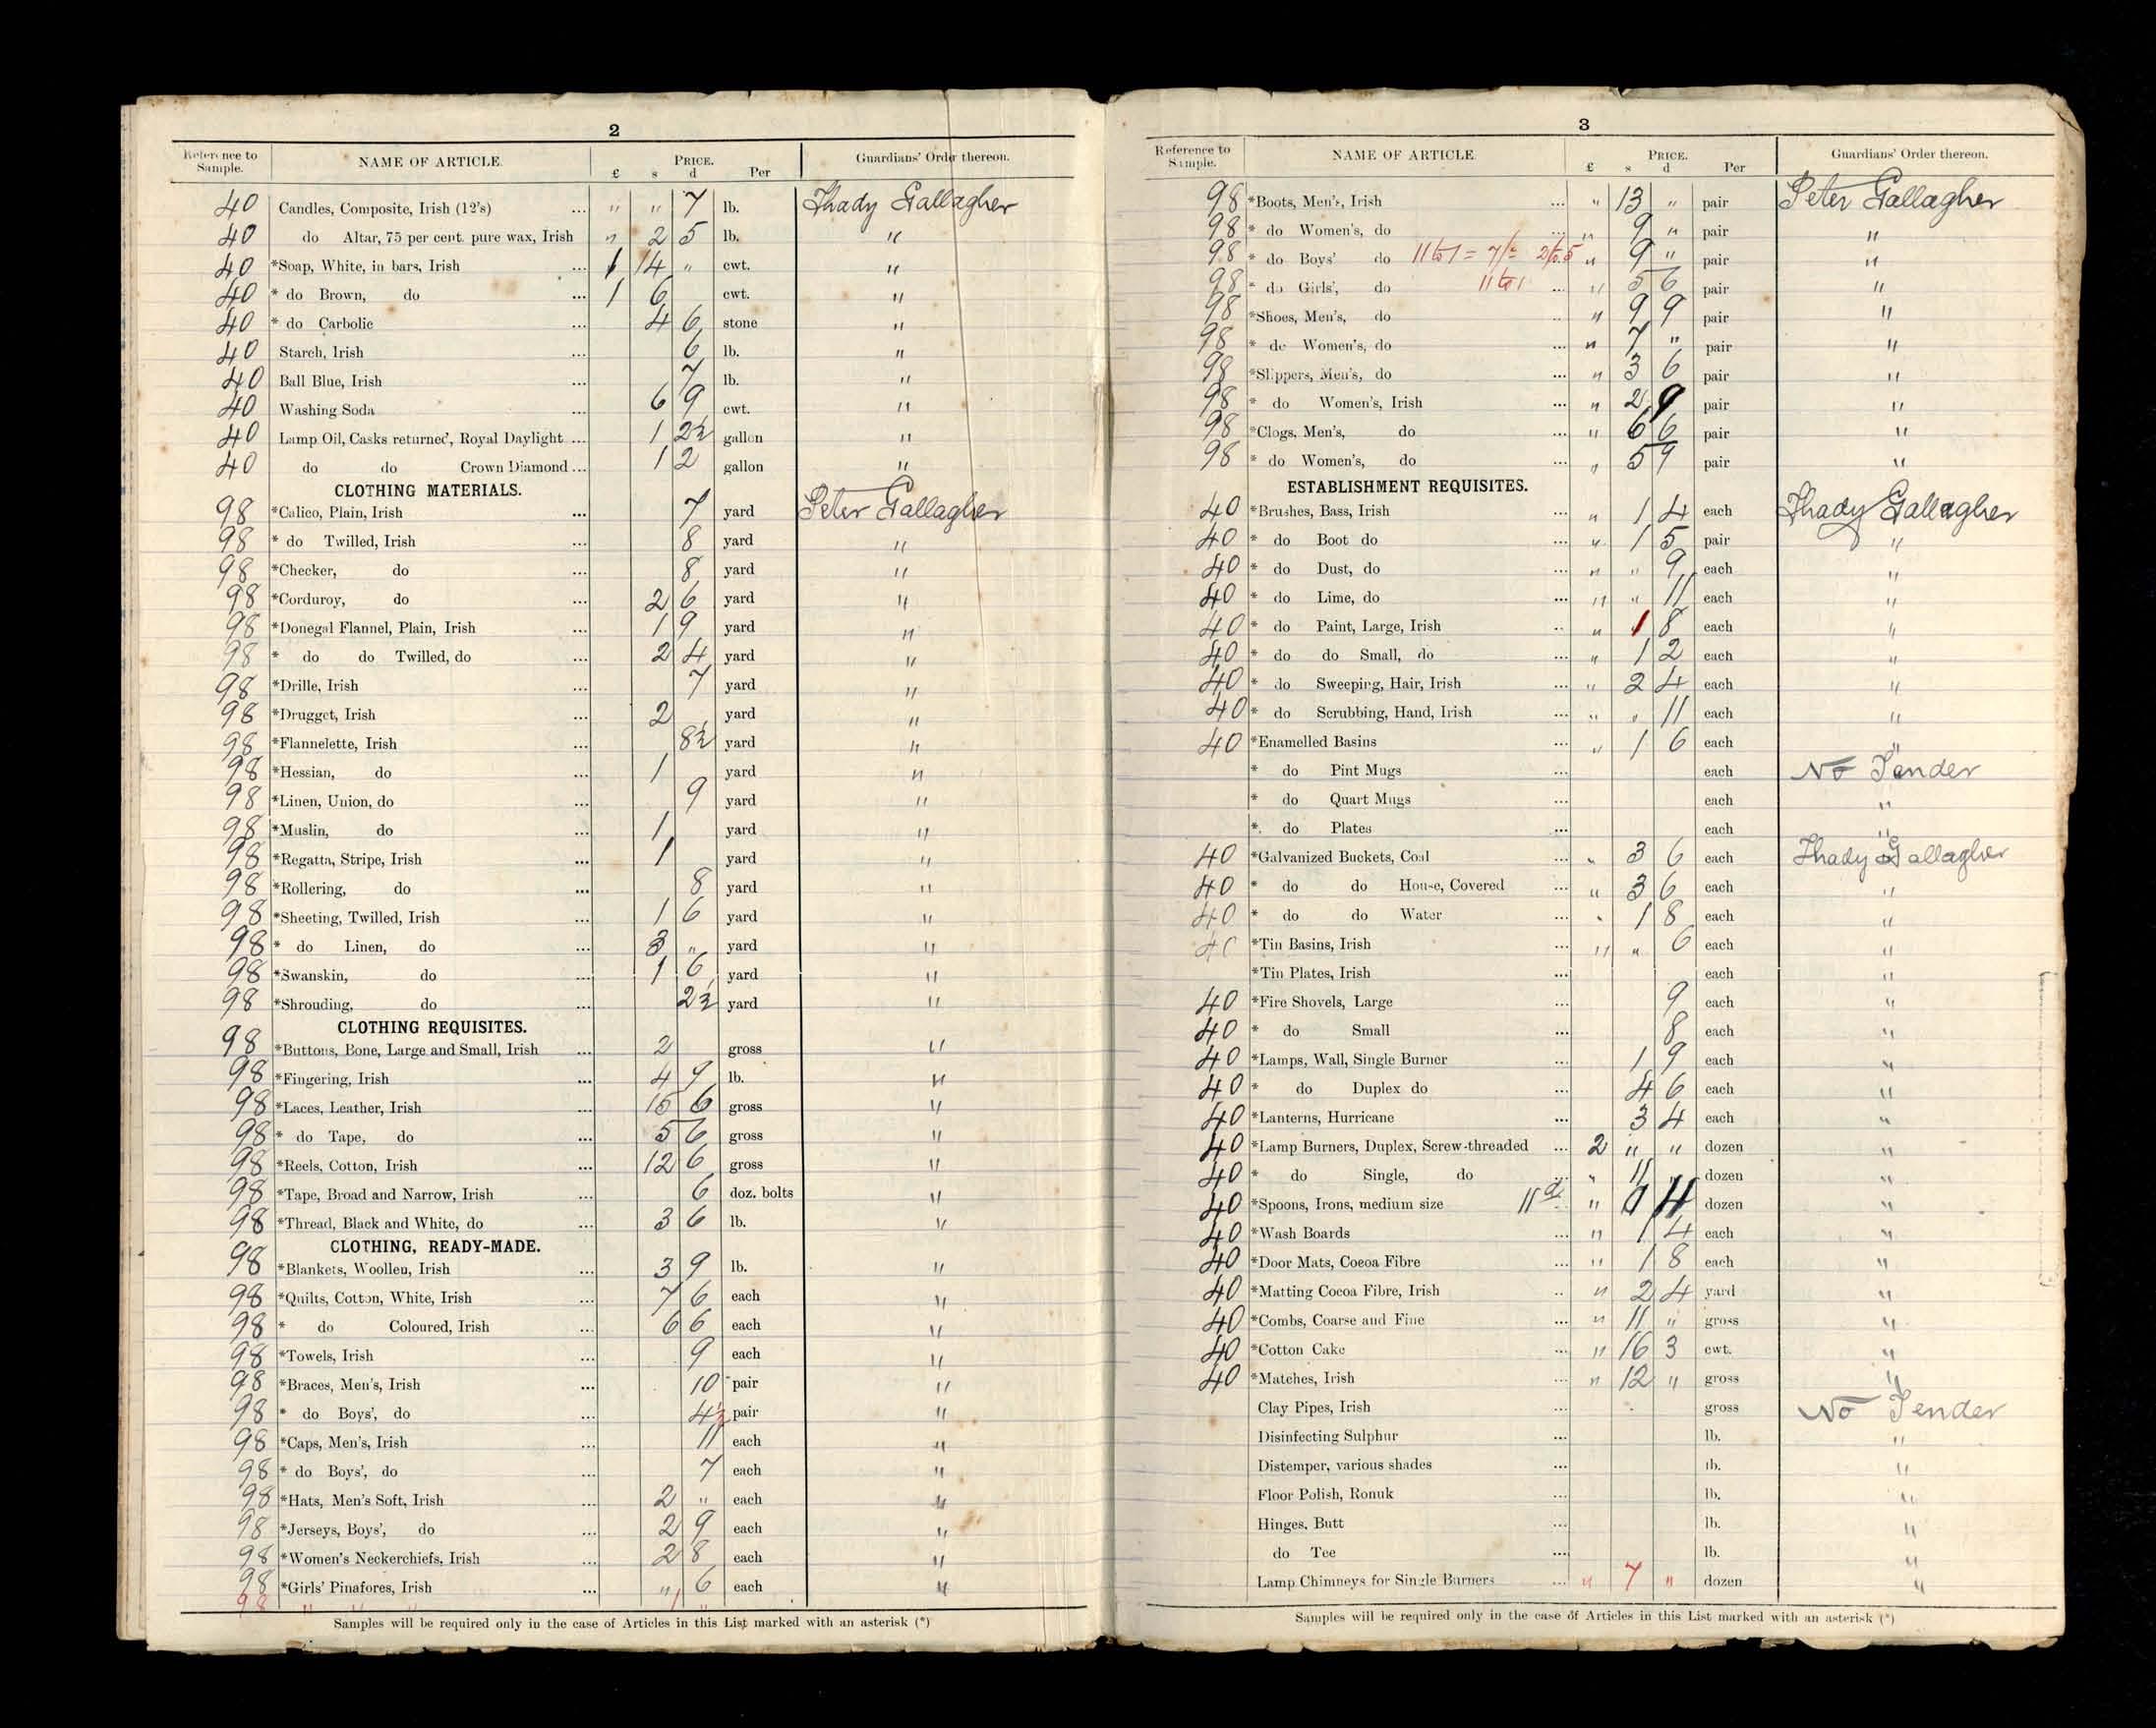 2
Reference to Sample. NAME OF ARTICLE. PRICE. £ s d Per Guardians' Order thereon.
40 Candles, Composite, Irish (12's) ... " " 7 lb. Thady Gallagher
40 do Altar, 75 per cent. pure wax, Irish " 2 5 lb. "
40 *Soap, White, in bars, Irish ... 1 14 " cwt. "
40 * do Brown, do ... 1 6 cwt. "
40 * do Carbolic ... 4 6 stone "
40 Starch, Irish ... 6 lb. "
40 Ball Blue, Irish ... 7 lb. "
40 Washing Soda ... 6 9 cwt. "
40 Lamp Oil, Casks returned, Royal Daylight ... 1 2½ gallon "
40 do do Crown Diamond ... 1 2 gallon "
CLOTHING MATERIALS.
98 *Calico, Plain, Irish ... 7 yard Peter Gallagher
98 * do Twilled, Irish ... 8 yard "
98 *Checker, do ... 8 yard "
98 *Corduroy, do ... 2 6 yard "
98 *Donegal Flannel, Plain, Irish ... 1 9 yard "
98 * do do Twilled, do ... 2 4 yard "
98 *Drille, Irish ... 7 yard "
98 *Drugget, Irish ... 2 yard "
98 *Flannelette, Irish ... 8½ yard "
98 *Hessian, do ... 1 yard "
98 *Linen, Union, do ... 9 yard "
98 *Muslin, do ... 1 yard "
98 *Regatta, Stripe, Irish ... 1 yard "
98 *Rollering, do ... 8 yard "
98 *Sheeting, Twilled, Irish ... 1 6 yard "
98 * do Linen, do ... 3 " yard "
98 *Swanskin, do ... 1 6 yard "
98 *Shrouding, do ... 2½ yard "
CLOTHING REQUISITES.
98 *Buttons, Bone, Large and Small, Irish ... 2 gross "
98 *Fingering, Irish ... 4 9 lb. "
98 *Laces, Leather, Irish ... 15 6 gross "
98 * do Tape, do ... 5 6 gross "
98 *Reels, Cotton, Irish ... 12 6 gross "
98 *Tape, Broad and Narrow, Irish ... 6 doz. bolts "
98 *Thread, Black and White, do ... 3 6 lb. "
CLOTHING, READY-MADE.
98 *Blankets, Woollen, Irish ... 3 9 lb. "
98 *Quilts, Cotton, White, Irish ... 7 6 each "
98 * do Coloured, Irish ... 6 6 each "
98 *Towels, Irish ... 9 each "
98 *Braces, Men's, Irish ... 10 pair "
98 * do Boys', do ... 4½ pair "
98 *Caps, Men's, Irish ... 11 each "
98 * do Boys', do ... 7 each "
98 *Hats, Men's Soft, Irish ... 2 " each "
98 *Jerseys, Boys', do ... 2 9 each "
98 *Women's Neckerchiefs, Irish ... 2 8 each "
98 *Girls' Pinafores, Irish ... " 6 each "
98
Samples will be required only in the case of Articles in this List marked with an asterisk (*)
3
Reference to Sample. NAME OF ARTICLE. PRICE. £ s d Per Guardians' Order thereon.
98 *Boots, Men's, Irish ... " 13 " pair Peter Gallagher
98 * do Women's, do ... " 9 " pair "
98 * do Boys' do " 9 " pair "
98 * do Girls', do ... " 5 6 pair "
98 *Shoes, Men's, do ... " 9 9 pair "
98 * do Women's, do ... " 7 " pair "
98 *Slippers, Men's, do ... " 3 6 pair "
98 * do Women's, Irish ... " 2 9 pair "
98 *Clogs, Men's, do ... " 6 6 pair "
98 * do Women's, do ... " 5 9 pair "
ESTABLISHMENT REQUISITES.
40 *Brushes, Bass, Irish ... " 1 4 each Thady Gallagher
40 * do Boot do ... " 1 5 pair "
40 * do Dust, do ... " " 9 each "
40 * do Lime, do ... " " 11 each "
40 * do Paint, Large, Irish ... " 1 8 each "
40 * do do Small, do ... " 1 2 each "
40 * do Sweeping, Hair, Irish ... " 2 4 each "
40 * do Scrubbing, Hand, Irish ... " " 11 each "
40 *Enamelled Basins ... " 1 6 each "
* do Pint Mugs ... each No Tender
* do Quart Mugs ... each "
* do Plates ... each "
40 *Galvanized Buckets, Coal ... " 3 6 each Thady Gallagher
40 * do do House, Covered ... " 3 6 each "
40 * do do Water ... " 1 8 each "
40 *Tin Basins, Irish ... " " 6 each "
*Tin Plates, Irish ... each "
40 *Fire Shovels, Large ... 9 each "
40 * do Small ... 8 each "
40 *Lamps, Wall, Single Burner ... 1 9 each "
40 * do Duplex do ... 4 6 each "
40 *Lanterns, Hurricane ... 3 4 each "
40 *Lamp Burners, Duplex, Screw-threaded ... 2 " " dozen "
40 * do Single, do ... " 11 " dozen "
40 *Spoons, Irons, medium size 11d " 11 dozen "
40 *Wash Boards ... " 1 4 each "
40 *Door Mats, Cocoa Fibre ... " 1 8 each "
40 *Matting Cocoa Fibre, Irish ... " 2 4 yard "
40 *Combs, Coarse and Fine ... " 11 " gross "
40 *Cotton Cake ... " 16 3 cwt. "
40 *Matches, Irish ... " 12 " gross "
Clay Pipes, Irish ... gross No Tender
Disinfecting Sulphur ... lb. "
Distemper, various shades ... lb. "
Floor Polish, Ronuk ... lb. "
Hinges, Butt ... lb. "
do Tee ... lb. "
Lamp Chimneys for Single Burners ... " 7 " dozen "
Samples will be required only in the case of Articles in this List marked with an asterisk (*)